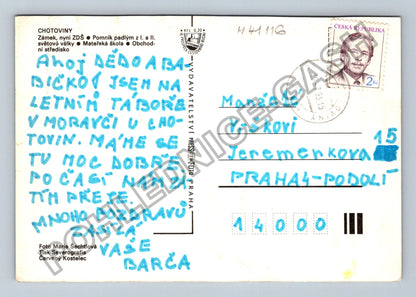 CHOTOVINY
Zámek, nyní ZDŠ • Pomník padlým z I. a II.
světové války • Mateřská škola • Obchod-
ní středisko
AHOJ DĚDO A BA-
BIČKO! JSEM NA
LETNÍM TÁBOŘE
V MORAVČI U CHO-
TOVIN. MÁME SE
TU MOC DOBŘE
POČASÍ NÁM ZA-
TÍM PŘEJE.
MNOHO POZDRAVŮ
ZASÍLÁ
VAŠE
BARČA
Foto Marie Šechtlová
Tisk Severografia
Červený Kostelec
VYDAVATELSTVÍ PRAHA
441116
ČESKÁ REPUBLIKA
2
Manželé
Jeremenkova 15
PRAHA 4-PODOLÍ
14000
POHLEDNICE ČASEM